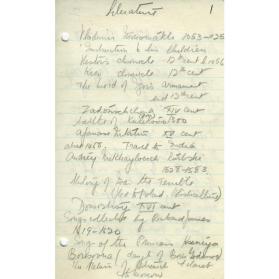 Literature 1
Vladimir Monomakh 1053-1125
"Instruction to his Children
Nestor's chronicle 12th cent
Kiev chronicle 12th cent
The word of Igor's
end 12th cent
Zadonshchina XIV cent
battle of Kulikovo 1380
Afanasi Nikitin XV cent
Travel to India
Andrey Mikhaylovich Kurbski
1528-1583
History of Ivan the Terrible
Domostroy XVI cent
Songs collected by Richard James
1619-1620
Song of the
daughter of Boris Godunov
The Return of